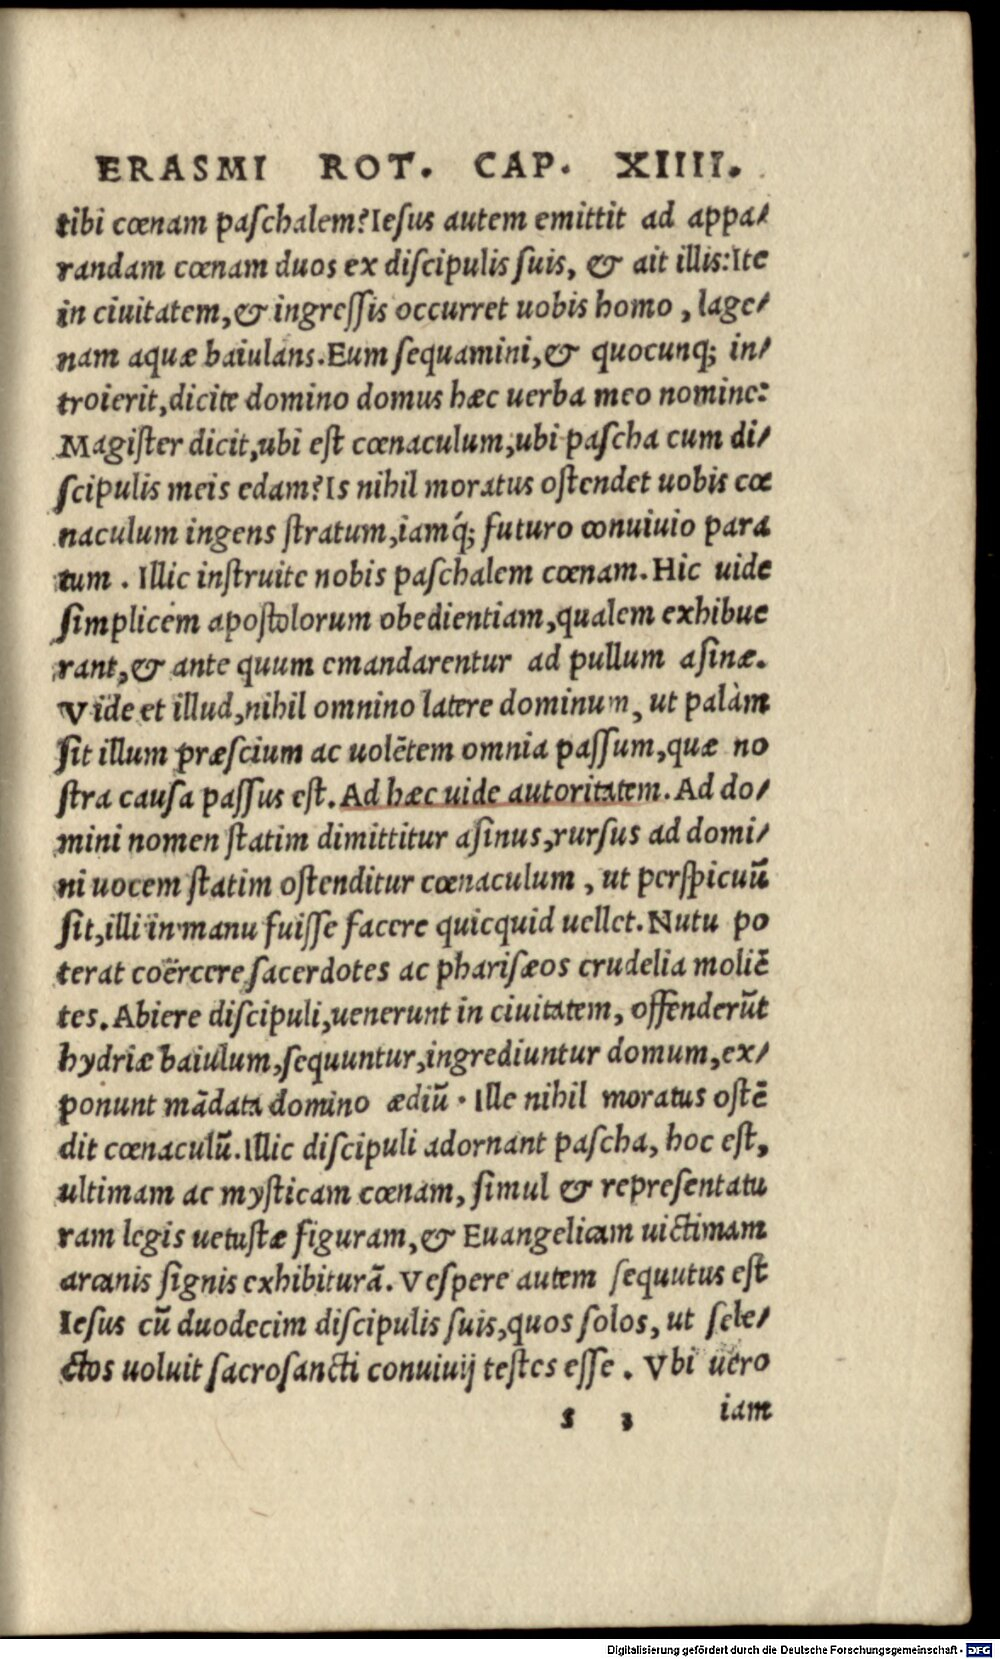 ERASMI ROT. CAP. XIIII.
tibi cœnam paſchalem?Ieſus autem emittit ad appa/
randam cœnam duos ex diſcipulis ſuis, & ait illis:Ite
in ciuitatem,& ingreſſis occurret uobis homo , lage/
nam aquæ baiulans.Eum ſequamini,& quocunq; in/
troierit,dicite domino domus hæc uerba meo nomine:
Magiſter dicit,ubi eſt cœnaculum,ubi paſcha cum di/
ſcipulis meis edam?Is nihil moratus oſtendet uobis cœ
naculum ingens ſtratum,iamq́; futuro conuiuio para
tum . Illic inſtruite nobis paſchalem cœnam.Hic uide
ſimplicem apoſtolorum obedientiam,qualem exhibue
rant,& ante quum emandarentur ad pullum aſinæ.
Vide et illud,nihil omnino latere dominum, ut palàm
ſit illum præſcium ac uolētem omnia paſſum,quæ no
ſtra cauſa paſſus eſt.Ad hæc uide autoritatem.Ad do/
mini nomen ſtatim dimittitur aſinus,rurſus ad domi/
ni uocem ſtatim oſtenditur cœnaculum , ut perſpicuū
ſit,illi in manu fuiſſe facere quicquid uellet.Nutu po
terat coërcere ſacerdotes ac phariſæos crudelia moliē
tes.Abiere diſcipuli,uenerunt in ciuitatem, offenderūt
hydriæ baiulum,ſequuntur,ingrediuntur domum,ex/
ponunt mādata domino ædiū . Ille nihil moratus oſtē
dit cœnaculū.Illic diſcipuli adornant paſcha, hoc eſt,
ultimam ac myſticam cœnam, ſimul & repreſentatu
ram legis uetuſtæ figuram,& Euangelicam uictimam
arcanis ſignis exhibiturā.Veſpere autem ſequutus eſt
Ieſus cū duodecim diſcipulis ſuis,quos ſolos, ut ſele/
ctos uoluit ſacroſancti conuiuij teſtes eſſe . Vbi uero
s 3 iam
Digitalisierung gefördert durch die Deutsche Forschungsgemeinschaft - DFG